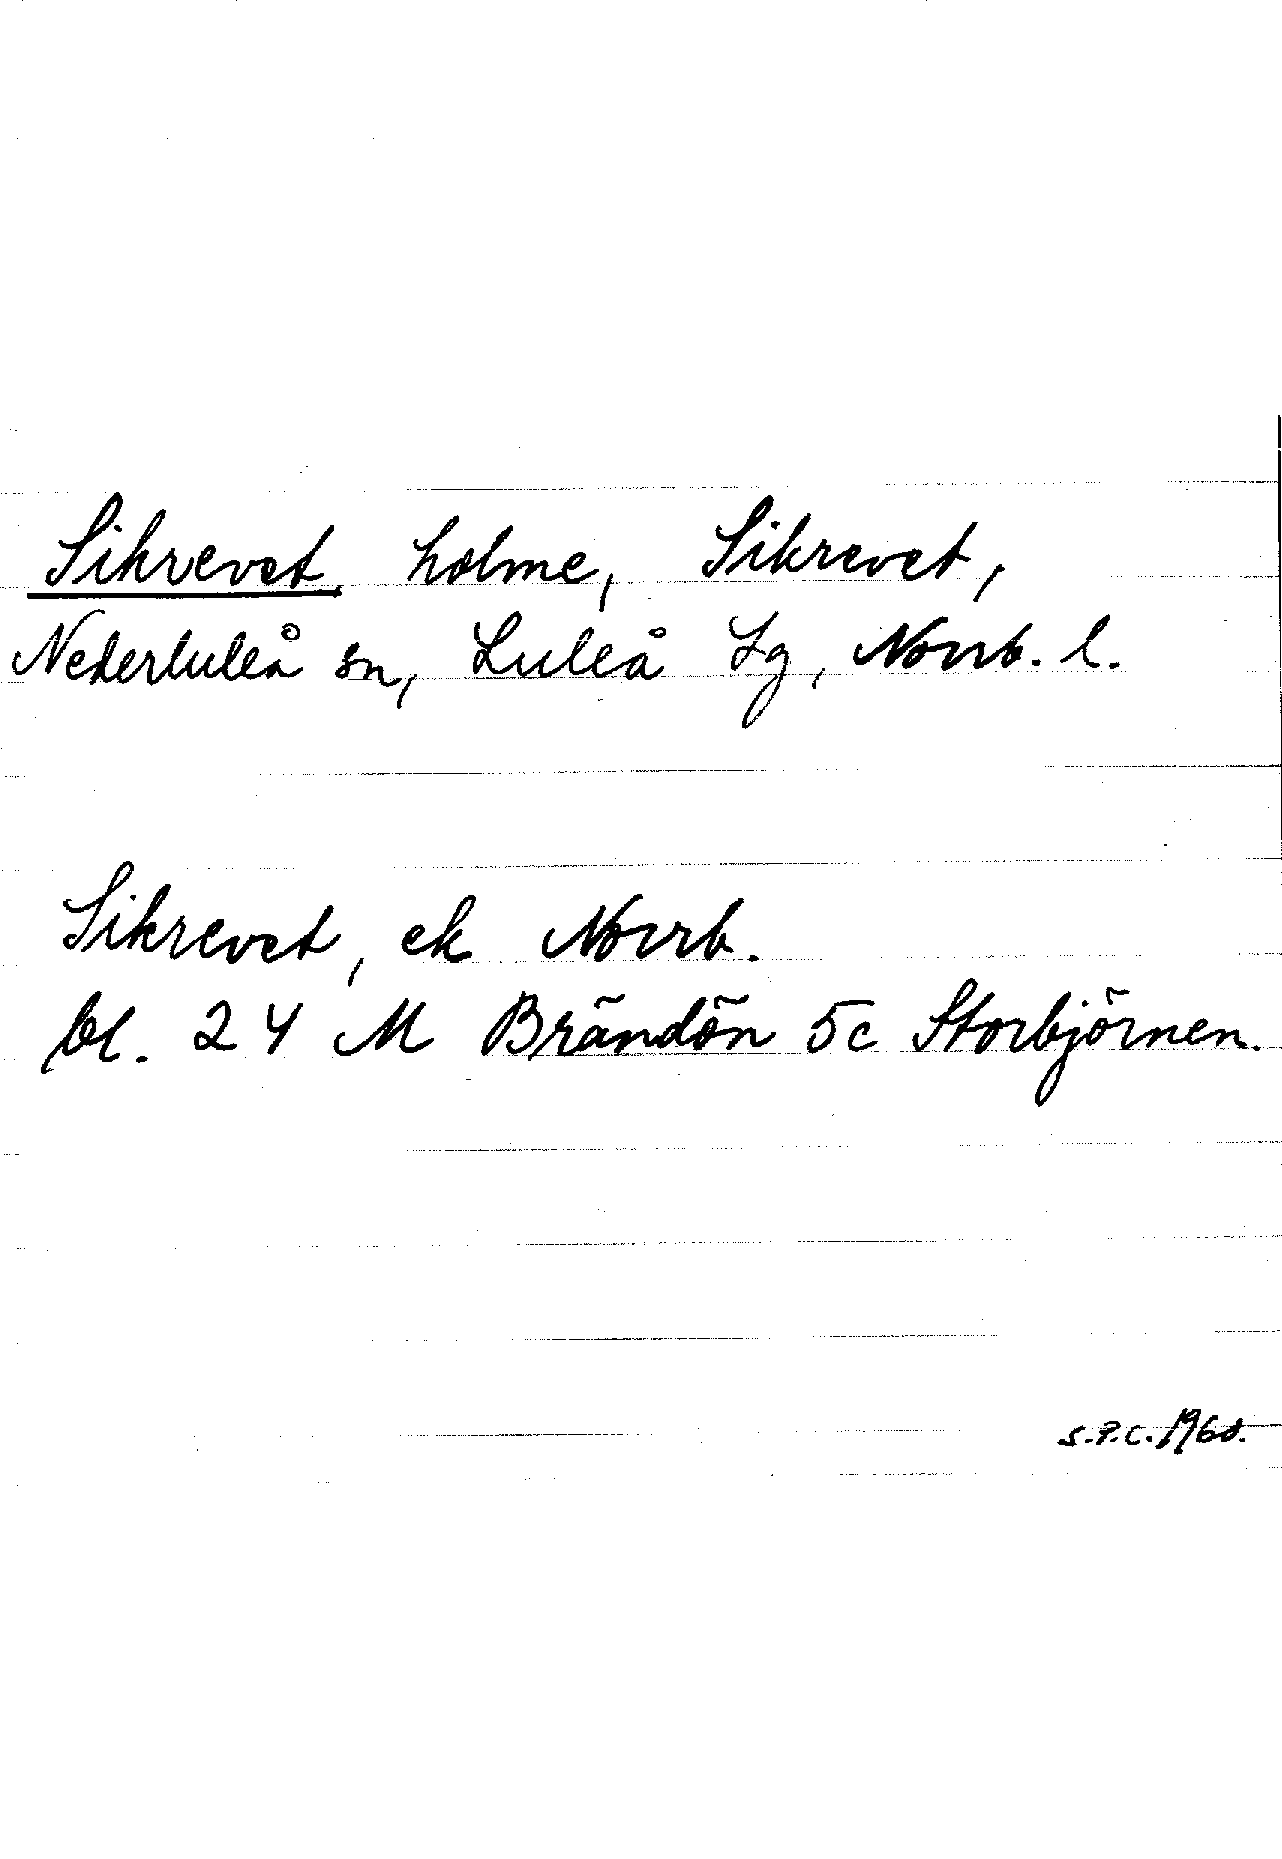 Sikrevet, holme, Sikrevet,
Nederluleå sn, Luleå Lg, Norrb. l.
Sikrevet, ek Norrb.
bl. 24 M Brändön 5c Storbjörnen.
S.P.C. 1968.